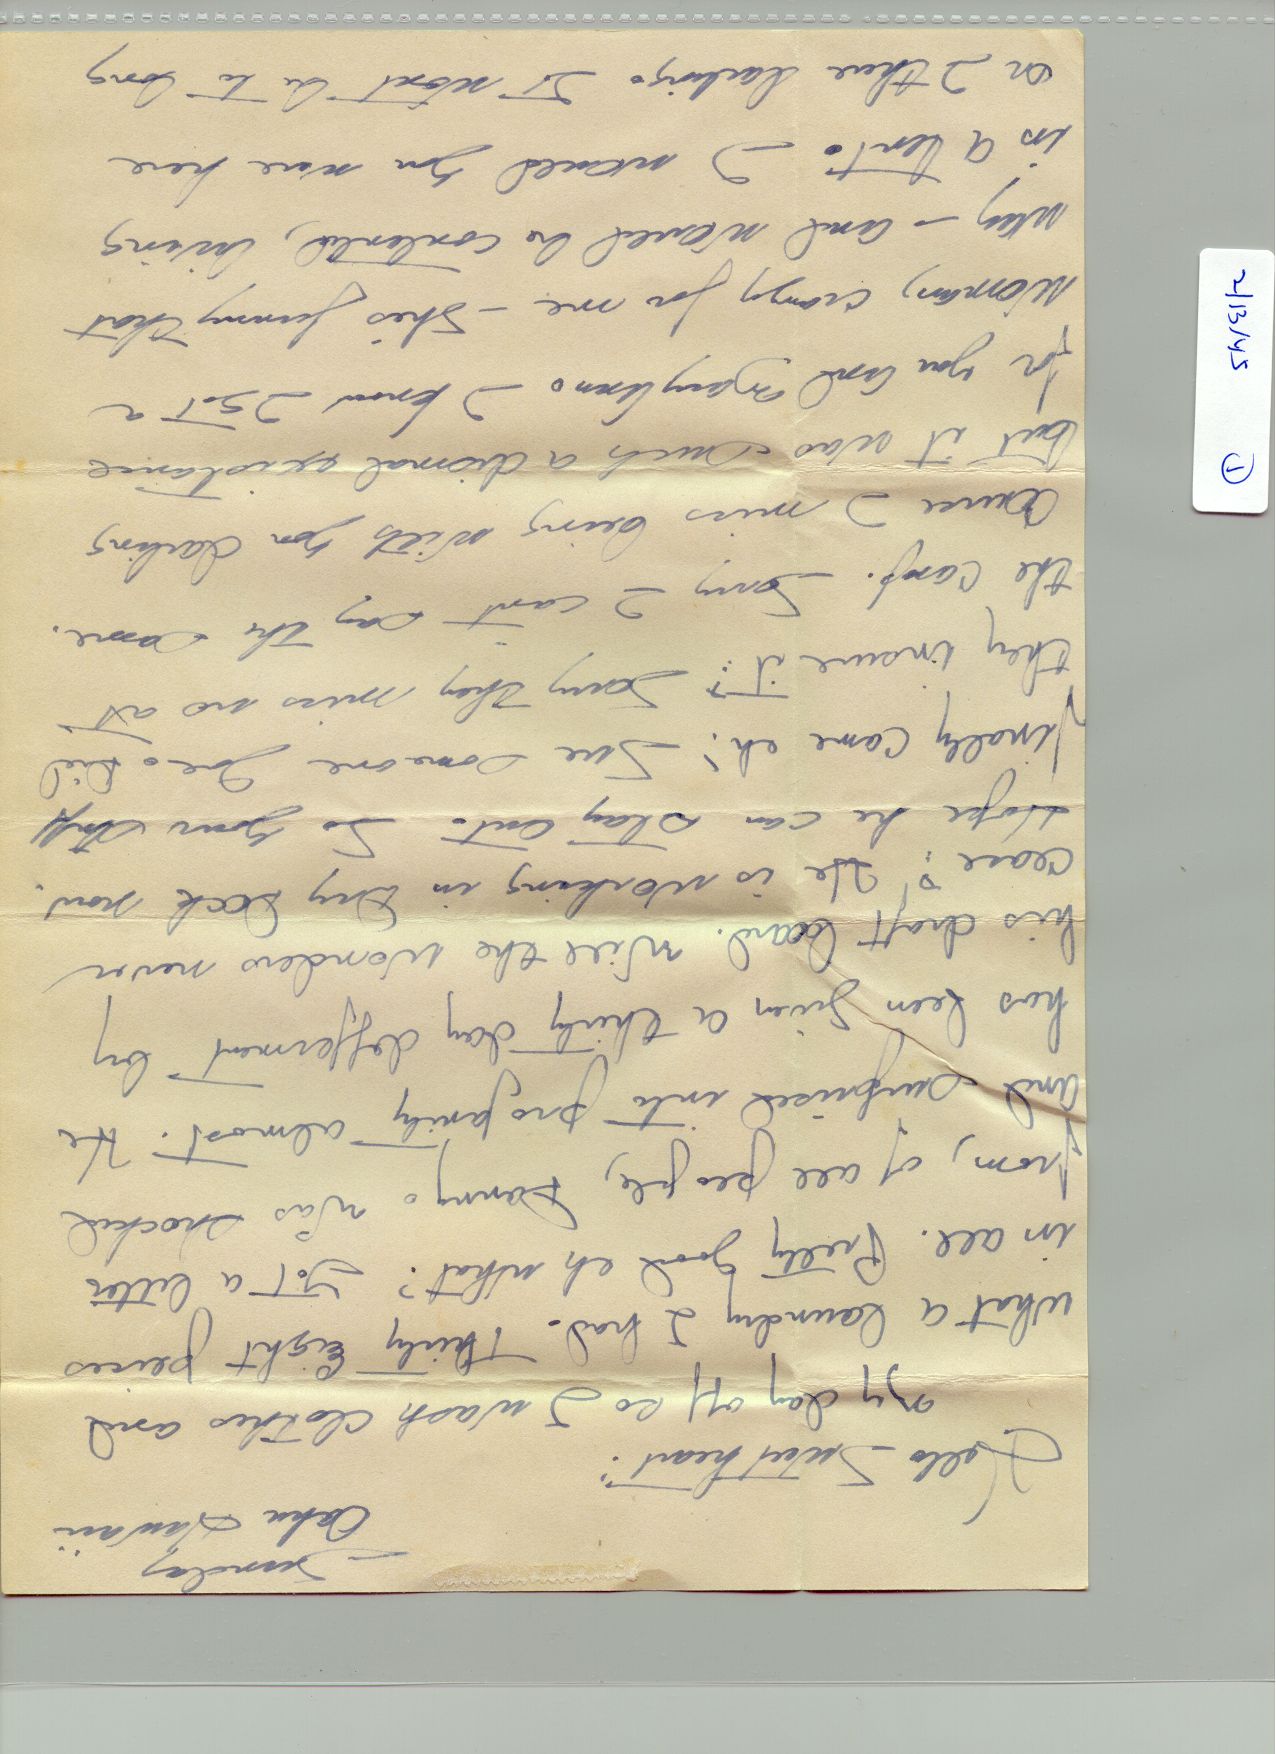 Sunday
Oahu Hawaii
Hello Sweetheart:
My day off so I wash clothes and
what a laundry I had. Thirty Eight peices
in all. Pretty good eh what? Got a letter
from, of all people, Danny. Was shocked
and surprised into profanity almost. He
has been given a thirty day defferment by
his draft board. Will the wonders never
cease? He is working in Dry Dock now.
Hope he can stay out. So your stuff
finally came eh? Sue someone Joe. Did
they insure it? Sorry they miss me at
the camp. Sorry I can't say the same.
Course I miss being with you darling
but it was such a dismal existance
for you and Maryann. I know I got a
woman, crazy for me - She's funny that
way - and would be contented, living
in a tent. I would you were here
or I there darling. It wont be to long
2/13/45
1